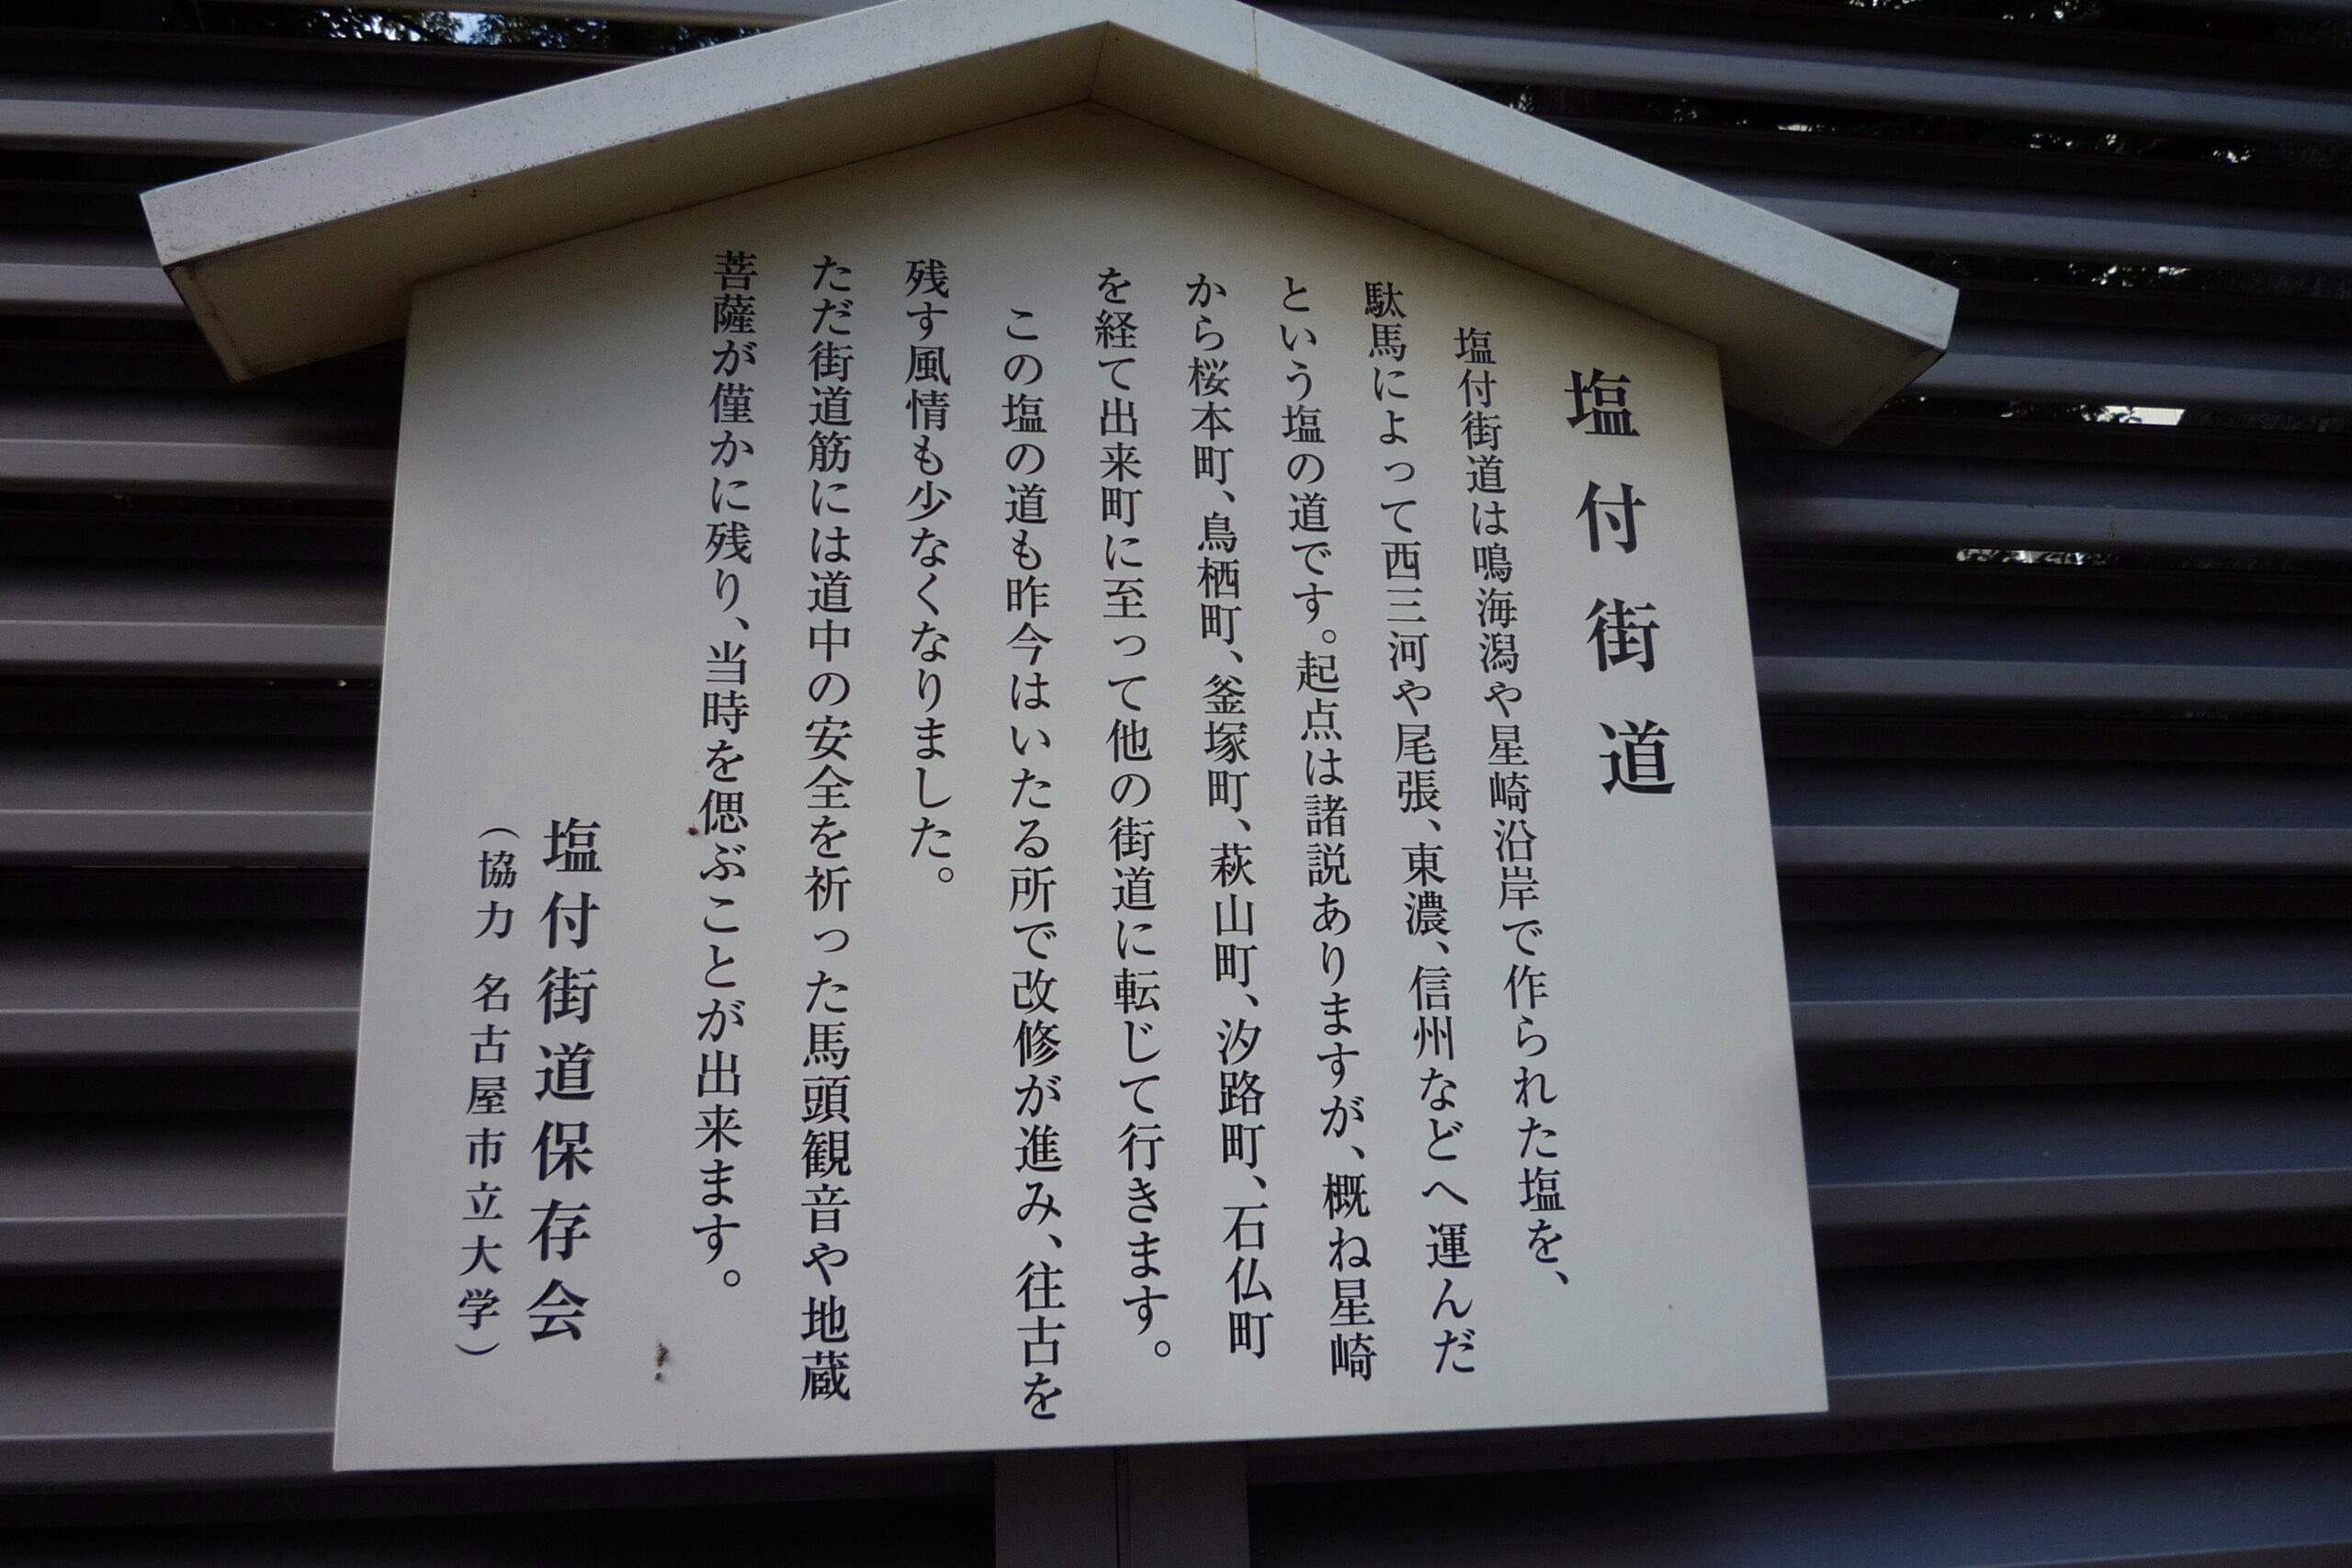 塩付街道
塩付街道は鳴海潟や星崎沿岸で作られた塩を、
駄馬によって西三河や尾張、東濃、信州などへ運んだ
という塩の道です。起点は諸説ありますが、概ね星崎
から桜本町、鳥栖町、釜塚町、萩山町、汐路町、石仏町
を経て出来町に至って他の街道に転じて行きます。
この塩の道も昨今はいたる所で改修が進み、往古を
残す風情も少なくなりました。
ただ街道筋には道中の安全を祈った馬頭観音や地蔵
菩薩が僅かに残り、当時を偲ぶことが出来ます。
塩付街道保存会
（協力 名古屋市立大学）